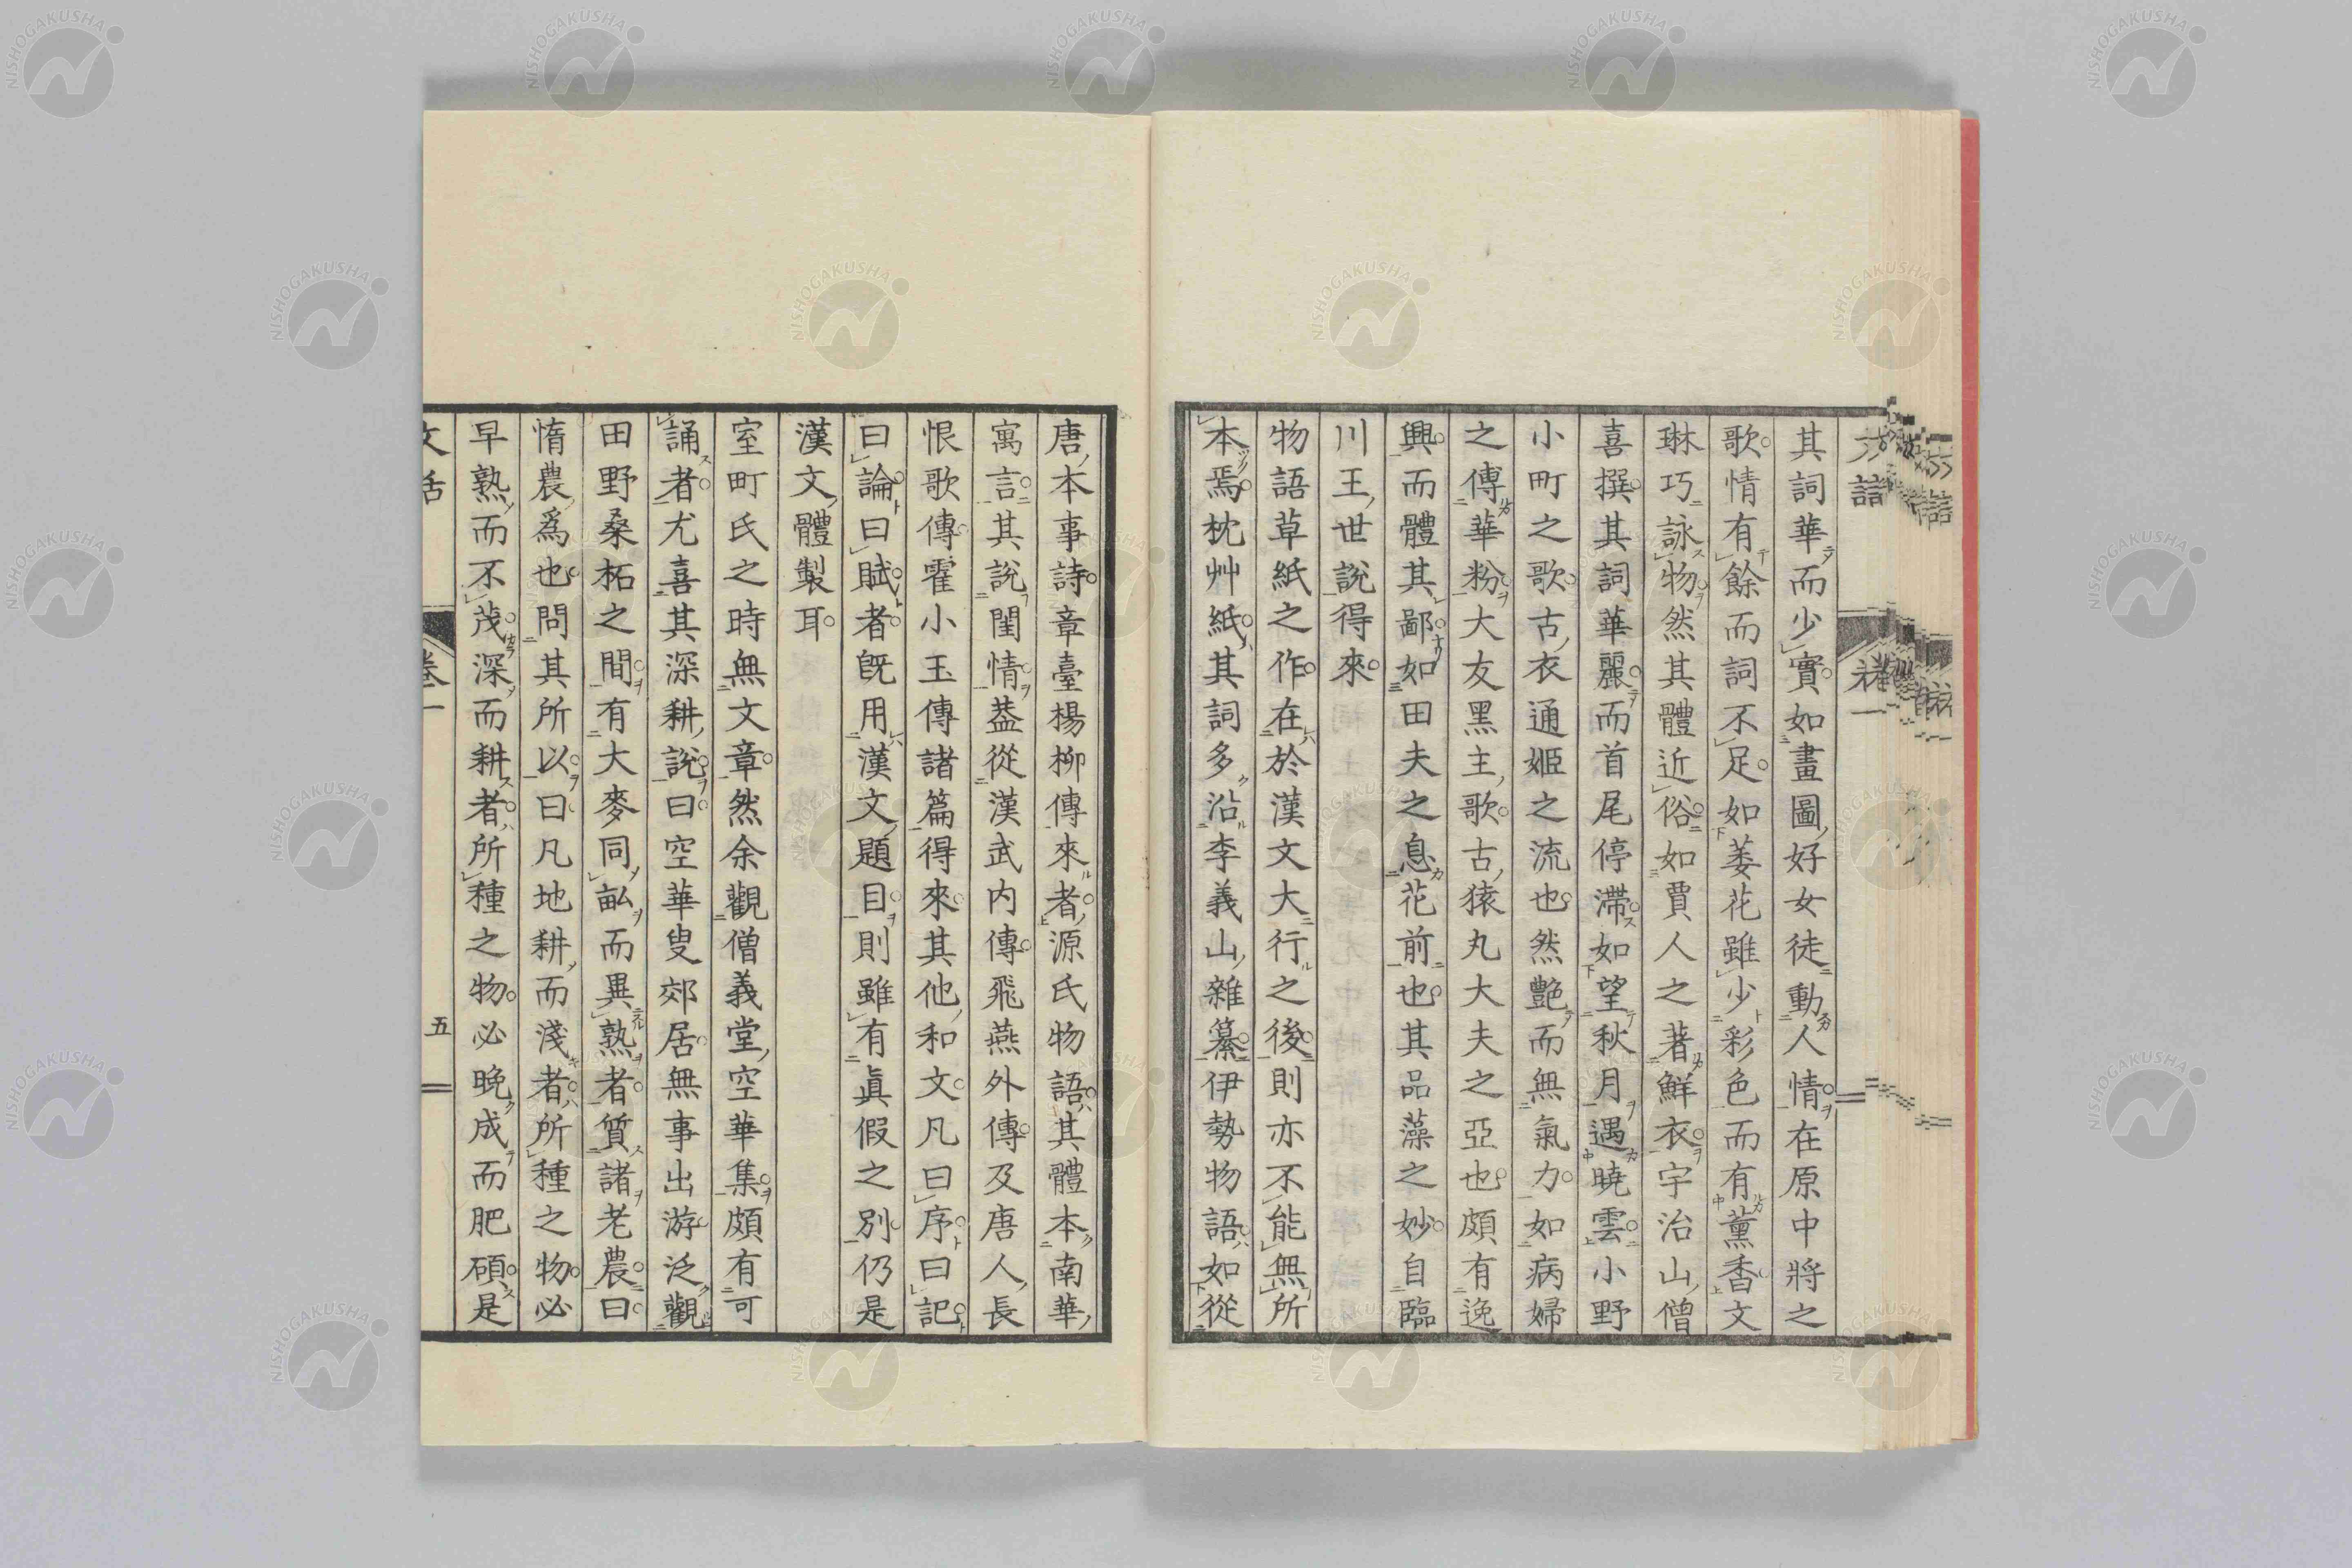 其詞華而少實如畫圖好女徒動人情在原中將之
歌情有餘而詞不足如萎花雖少彩色而有薫香文
琳巧詠物然其體近俗如賈人之著鮮衣宇治山僧
喜撰其詞華麗而首尾停滯如望秋月遇曉雲小野
小町之歌古衣通姬之流也然艷而無氣力如病婦
之傳華粉大友黑主歌古猿丸大夫之亞也頗有逸
興而體甚鄙如田夫之息花前也其品藻之妙自臨
川王世說得來
物語草紙之作在於漢文大行之後則亦不能無所
本焉枕艸紙其詞多沿李義山雜纂伊勢物語如從
唐本事詩章臺楊柳傳來者源氏物語其體本南華
寓言其說閨情葢從漢武內傳飛燕外傳及唐人長
恨歌傳霍小玉傳諸篇得來其他和文凡曰序曰記
曰論曰賦者旣用漢文題目則雖有眞假之別仍是
漢文體製耳
室町氏之時無文章然余觀僧義堂空華集頗有可
誦者尤喜其深耕說曰空華叟郊居無事出游泛觀
田野桑柘之間有大麥同畝而異熟者質諸老農曰
惰農爲也問其所以曰凡地耕而淺者所種之物必
早熟而不茂深而耕者所種之物必晚成而肥碩是
文話
卷一
五
NISHOGAKUSHA